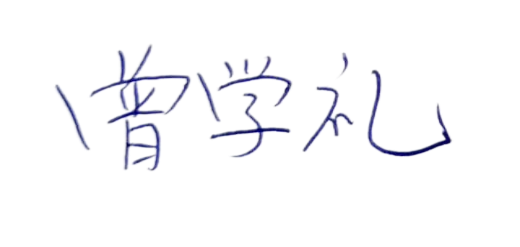 曾学礼